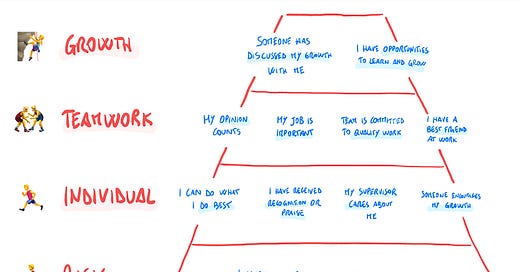 GROWTH
SOMEONE HAS
DISCUSSED MY GROWTH
WITH ME
I HAVE OPPORTUNITIES
TO LEARN AND GROW
TEAMWORK
MY OPINION
COUNTS
MY JOB IS
IMPORTANT
TEAM IS COMMITTED
TO QUALITY WORK
I HAVE A
BEST FRIEND
AT WORK
INDIVIDUAL
I CAN DO WHAT
I DO BEST
I HAVE RECEIVED
RECOGNITION OR
PRAISE
MY SUPERVISOR
CARES ABOUT
ME
SOMEONE ENCOURAGES
MY GROWTH